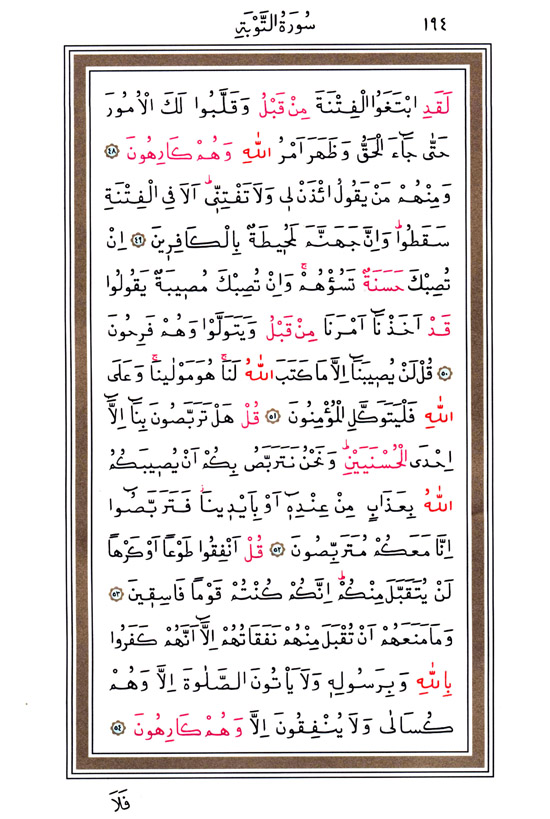 ١٩٤
سُورَةُ التَّوْبَةِ
لَقَدِ ابْتَغَوُا الْفِتْنَةَ مِنْ قَبْلُ وَقَلَّبُوا لَكَ الْاُمُورَ
حَتّٰى جَٓاءَ الْحَقُّ وَظَهَرَ اَمْرُ اللّٰهِ وَهُمْ كَارِهُونَ ﴿٤٨﴾
وَمِنْهُمْ مَنْ يَقُولُ ائْذَنْ ل۪ي وَلَا تَفْتِنّ۪يۜ اَلَا فِي الْفِتْنَةِ
سَقَطُواۜ وَاِنَّ جَهَنَّمَ لَمُح۪يطَةٌ بِالْكَافِر۪ينَ ﴿٤٩﴾ اِنْ
تُصِبْكَ حَسَنَةٌ تَسُؤْهُمْۚ وَاِنْ تُصِبْكَ مُص۪يبَةٌ يَقُولُوا
قَدْ اَخَذْنَٓا اَمْرَنَا مِنْ قَبْلُ وَيَتَوَلَّوْا وَهُمْ فَرِحُونَ
﴿٥٠﴾ قُلْ لَنْ يُص۪يبَنَٓا اِلَّا مَا كَتَبَ اللّٰهُ لَنَاۚ هُوَ مَوْلٰينَاۚ وَعَلَى
اللّٰهِ فَلْيَتَوَكَّلِ الْمُؤْمِنُونَ ﴿٥١﴾ قُلْ هَلْ تَرَبَّصُونَ بِنَٓا اِلَّٓا
اِحْدَى الْحُسْنَيَيْنِۜ وَنَحْنُ نَتَرَبَّصُ بِكُمْ اَنْ يُص۪يبَكُمُ
اللّٰهُ بِعَذَابٍ مِنْ عِنْدِه۪ٓ اَوْ بِاَيْد۪ينَاۘ فَتَرَبَّصُٓوا
اِنَّا مَعَكُمْ مُتَرَبِّصُونَ ﴿٥٢﴾ قُلْ اَنْفِقُوا طَوْعًا اَوْ كَرْهًا
لَنْ يُتَقَبَّلَ مِنْكُمْۜ اِنَّكُمْ كُنْتُمْ قَوْمًا فَاسِق۪ينَ ﴿٥٣﴾
وَمَا مَنَعَهُمْ اَنْ تُقْبَلَ مِنْهُمْ نَفَقَاتُهُمْ اِلَّٓا اَنَّهُمْ كَفَرُوا
بِاللّٰهِ وَبِرَسُولِه۪ وَلَا يَأْتُونَ الصَّلٰوةَ اِلَّا وَهُمْ
كُسَالٰى وَلَا يُنْفِقُونَ اِلَّا وَهُمْ كَارِهُونَ ﴿٥٤﴾
فَلَا